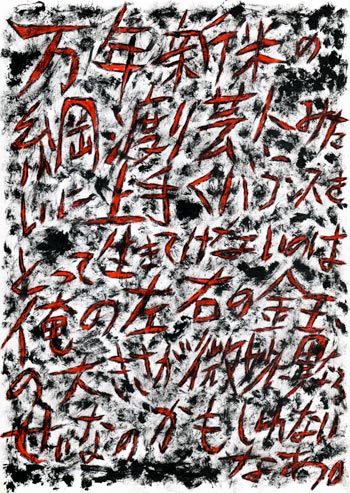 万年新米の
綱渡り芸人みた
いに上手くバランスを
とって生きてけないのは
俺の左右の金玉
の大きさが微妙に異なる
せいなのかもしれない
なあ。